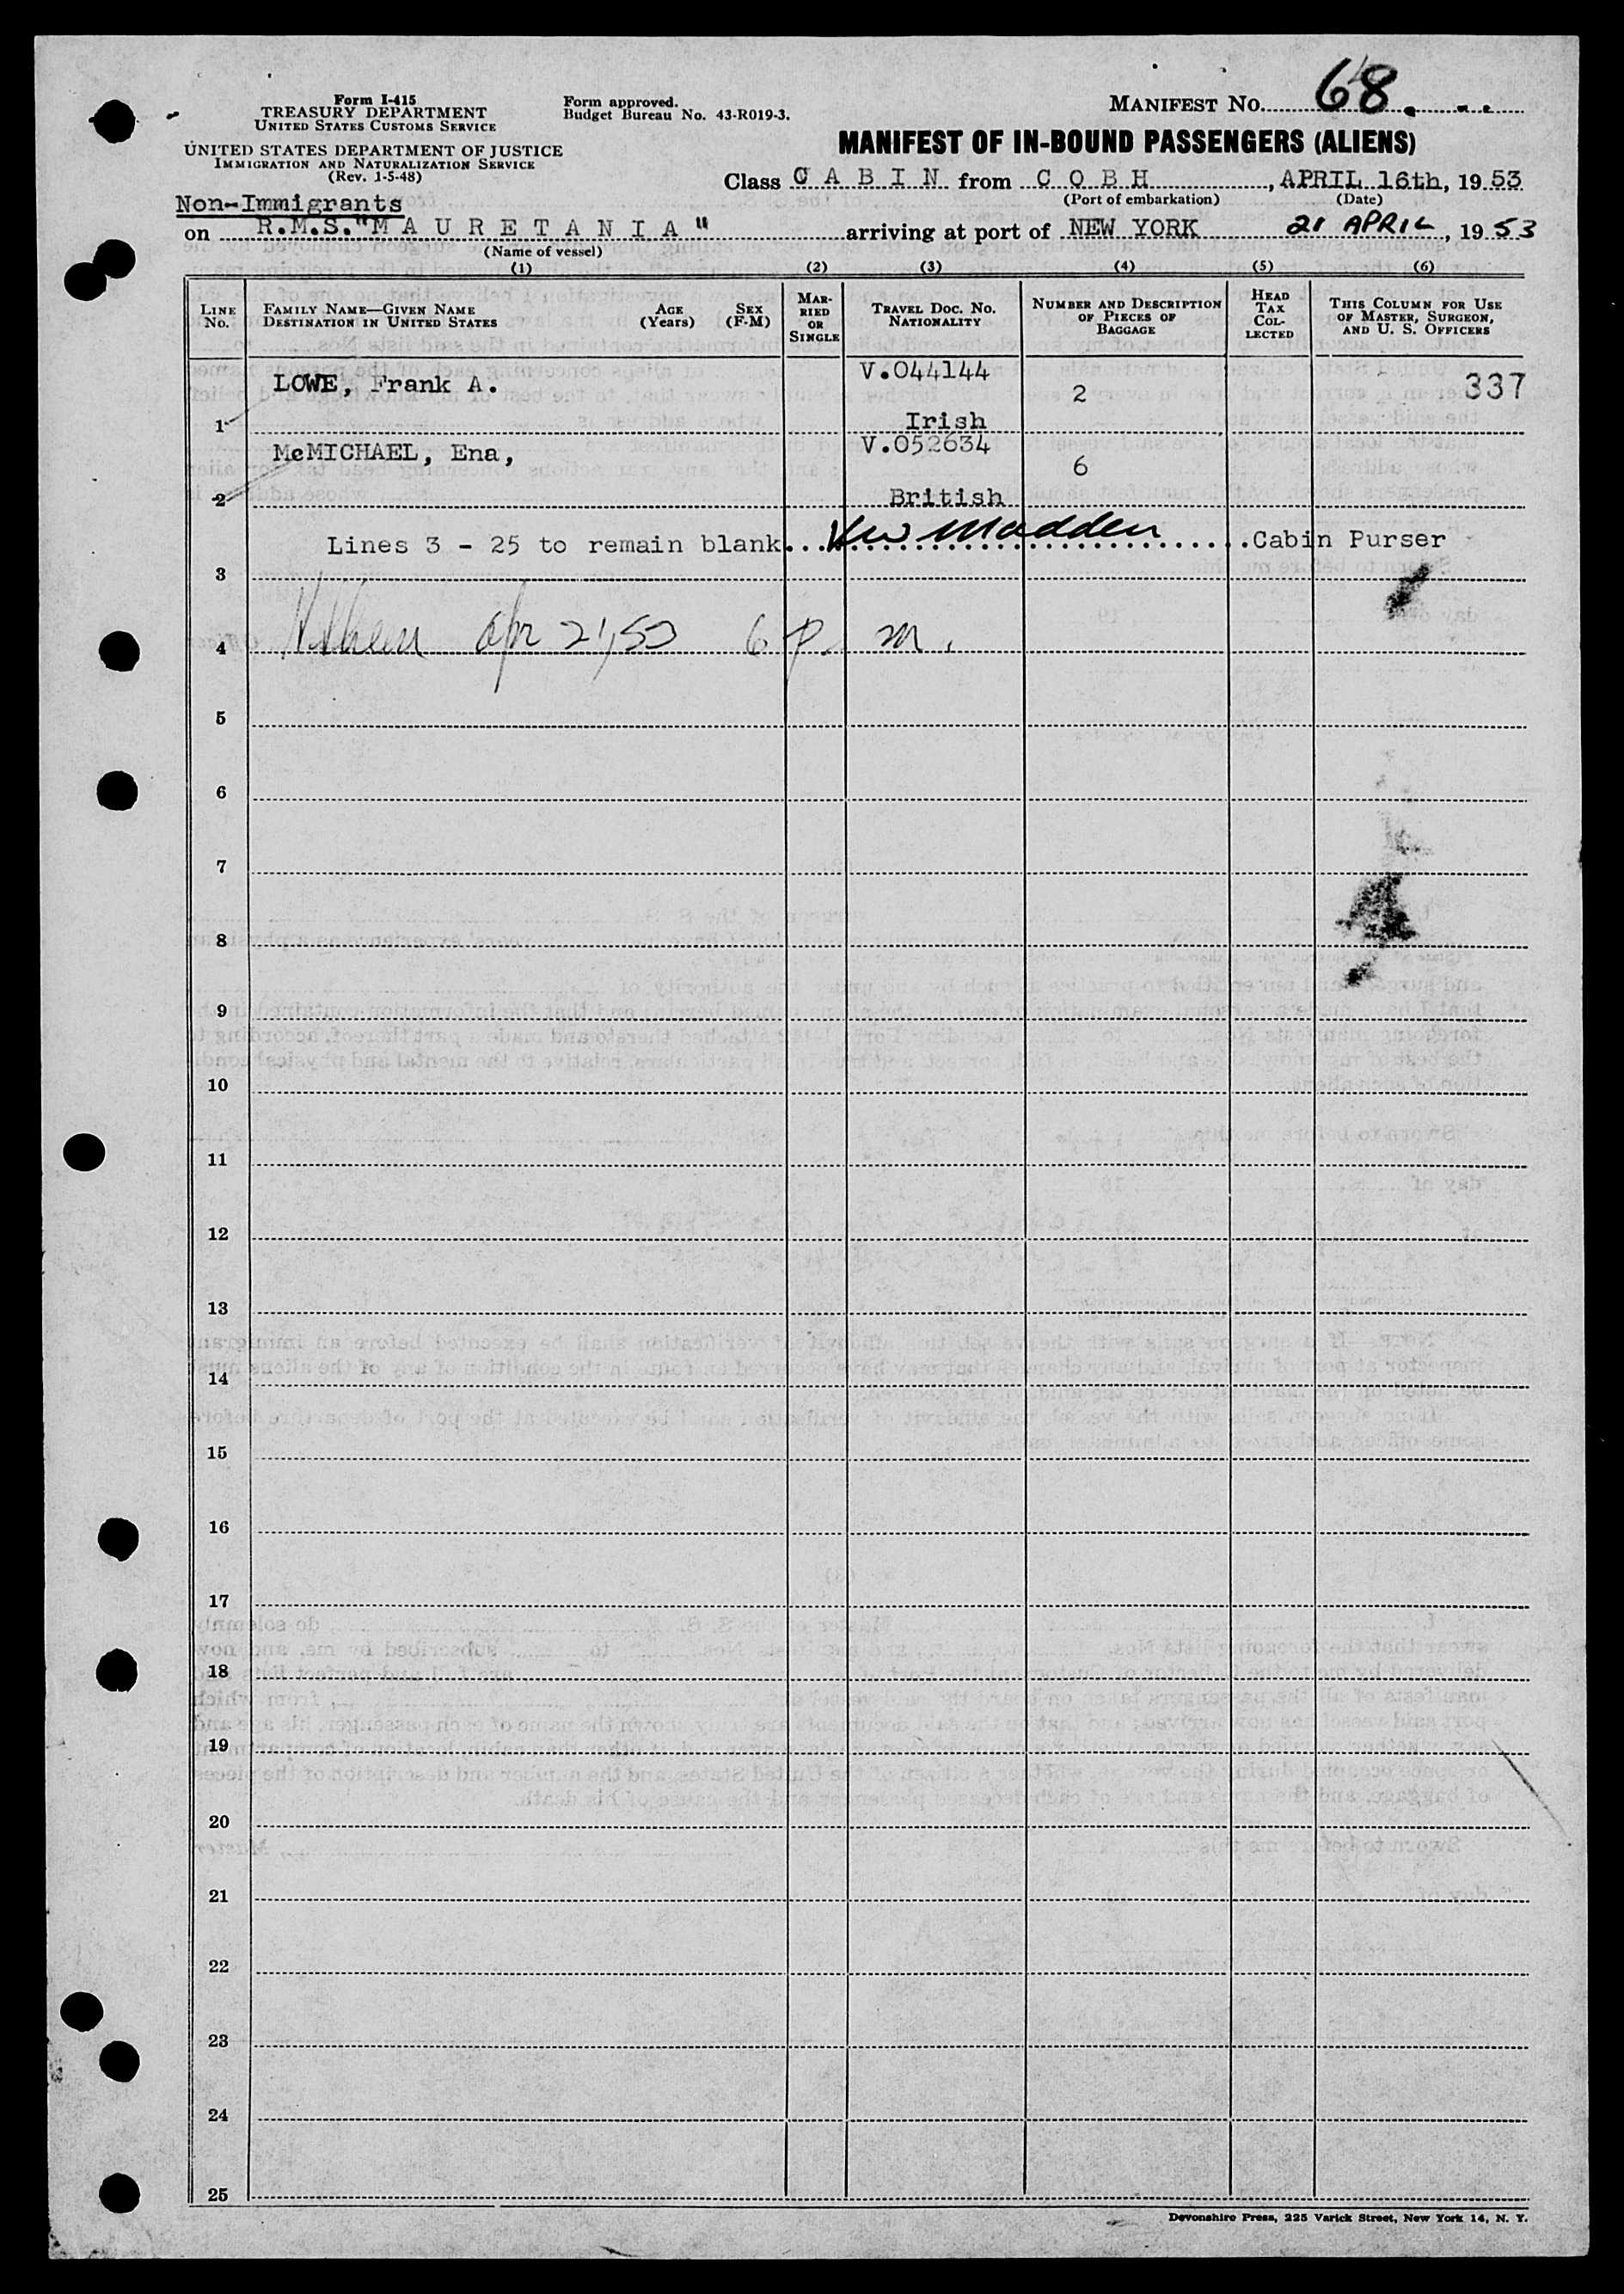 Form I-415
TREASURY DEPARTMENT
UNITED STATES CUSTOMS SERVICE
UNITED STATES DEPARTMENT OF JUSTICE
IMMIGRATION AND NATURALIZATION SERVICE
(Rev. 1-5-48)
Form approved.
Budget Bureau No. 43-R019-3.
MANIFEST NO. 68
MANIFEST OF IN-BOUND PASSENGERS (ALIENS)
Class CABIN from COBH, APRIL 16th, 1953
(Port of embarkation) (Date)
Non-Immigrants
on R.M.S."MAURETANIA" arriving at port of NEW YORK 21 APRIL, 1953
(Name of vessel)
(1) (2) (3) (4) (5) (6)
LINE No. FAMILY NAME—GIVEN NAME DESTINATION IN UNITED STATES AGE (Years) SEX (F-M) MARRIED OR SINGLE TRAVEL DOC. NO. NATIONALITY NUMBER AND DESCRIPTION OF PIECES OF BAGGAGE HEAD TAX COLLECTED THIS COLUMN FOR USE OF MASTER, SURGEON, AND U. S. OFFICERS
LOWE, Frank A. V.044144 2 337
1 Irish
McMICHAEL, Ena, V.052634 6
2 British
Lines 3 - 25 to remain blank Madden Cabin Purser
3
4 Apr 21, 53 6 p. m.
5
6
7
8
9
10
11
12
13
14
15
16
17
18
19
20
21
22
23
24
25
Devonshire Press, 225 Varick Street, New York 14, N. Y.